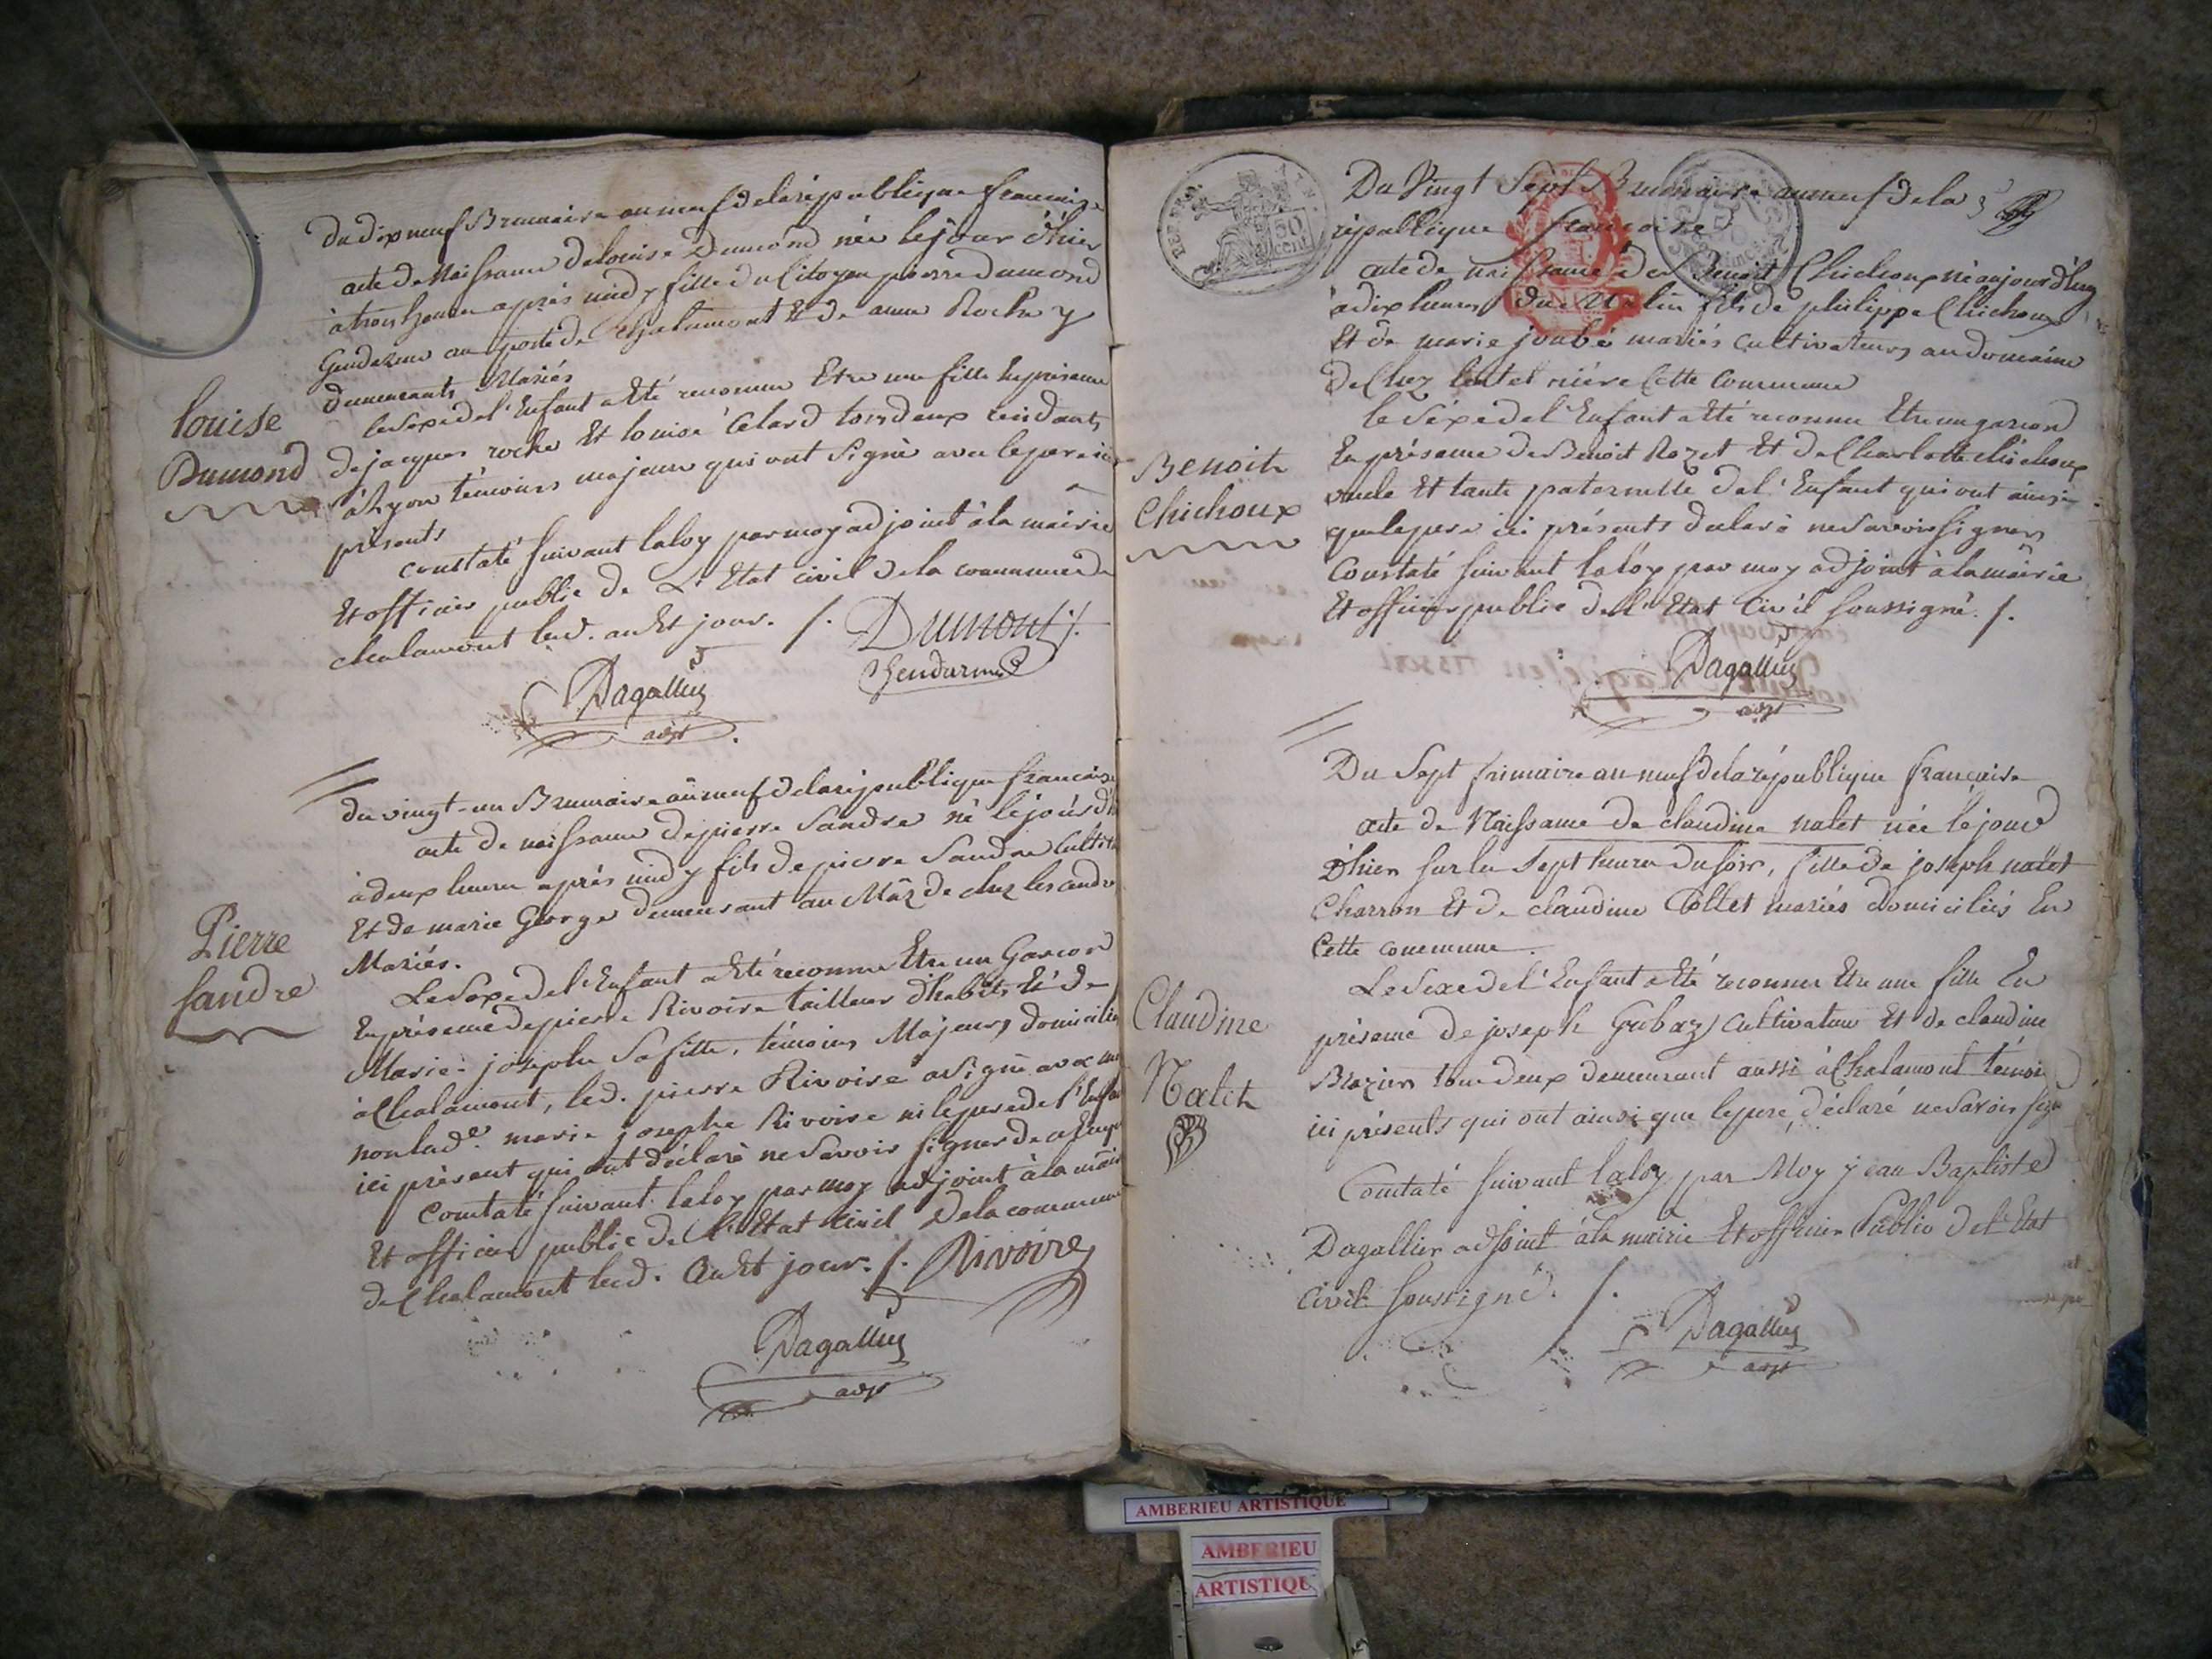 du dix neuf Brumaire an neuf de la république francaise
acte de Naissance de louise Dumond née le jour d'hier
à trois heures après midy fille du Citoyen pierre dumond
Gendarme au poste de Chalamont Et de anne Roche y
demeurants Mariés
le Sexe de l'Enfant a Eté reconnu Etre une fille En présence
de jacques roche Et louise Celard tous deux residants
à Lyon témoins majeurs qui ont Signé avec le pere ici
présents
Constaté suivant la loy par moy adjoint à la mairie
Et officier public de L'Etat civil de la commune de
chalamont led. an Et jour. /.
Dumont
Gendarme
Dagallier
adjt
louise
Dumond
du vingt-un Brumaire an neuf de la république francaise
acte de naissance de pierre Sandre né le jour d'h
à deux heures après midy fils de pierre Sandre Cultiv
Et de marie George demeurant au Mâz de chez les andre
Mariés.
Le Sexe de l'Enfant a Eté reconnu Etre un Garcon
En présence de pierre Rivoire tailleur d'habits Et de
Marie-josephe Sa fille, témoins Majeurs domicilies
à Chalamont, led. pierre Rivoire a Signé avec moy
non lade. marie josephe Rivoire ni le pere de l'Enfant
ici présent qui ont déclaré ne Savoir Signer de ce
Constaté suivant la loy par moy adjoint à la mairie
Et officier public de l'Etat Civil de la commune
de Chalamont led. an Et jour. /.
Rivoire
Dagallier
adjt
Pierre
Sandre
50
cent
Du Vingt Sept Brumaire an neuf de la
république francaise
acte de naissance de Benoit Chichoux né aujourd'huy
à dix heures du Matin fils de philippe Chichoux
Et de marie joubé mariés Cultivateurs au domaine
de Chez riére Cette Commune
le Séxe de l'Enfant a Eté reconnu Etre un garcon
En présence de Benoit Rozet Et de Charlotte chichoux
oncle Et tante paternelle de l'Enfant qui ont ainsi
que le pere ici présents declaré ne Savoir Signer
Constaté suivant la loy par moy adjoint à la mairie
Et officier public de l'Etat Civil soussigné. /.
Dagallier
adjt
Benoit
Chichoux
Du Sept frimaire an neuf de la république francaise
acte de Naissance de claudine natet née le jour
D'hier sur les Sept heures du soir, fille de joseph natet
Charron Et de claudine Collet mariés domiciliés En
Cette commune.
Le Sexe de l'Enfant a Eté reconnu Etre une fille En
présence de joseph Gubaz Cultivateur Et de claudine
Brazier tous deux demeurant aussi à Chalamont témoins
ici présents qui ont ainsi que le pere, déclaré ne Savoir sign
Constaté suivant la loy par Moy jean Baptiste
Dagallier adjoint à la mairie Et officier Public de l'Etat
Civil soussigné. /.
Dagallier
adjt
Claudine
Natet
AMBERIEU ARTISTIQUE
AMBERIEU
ARTISTIQU